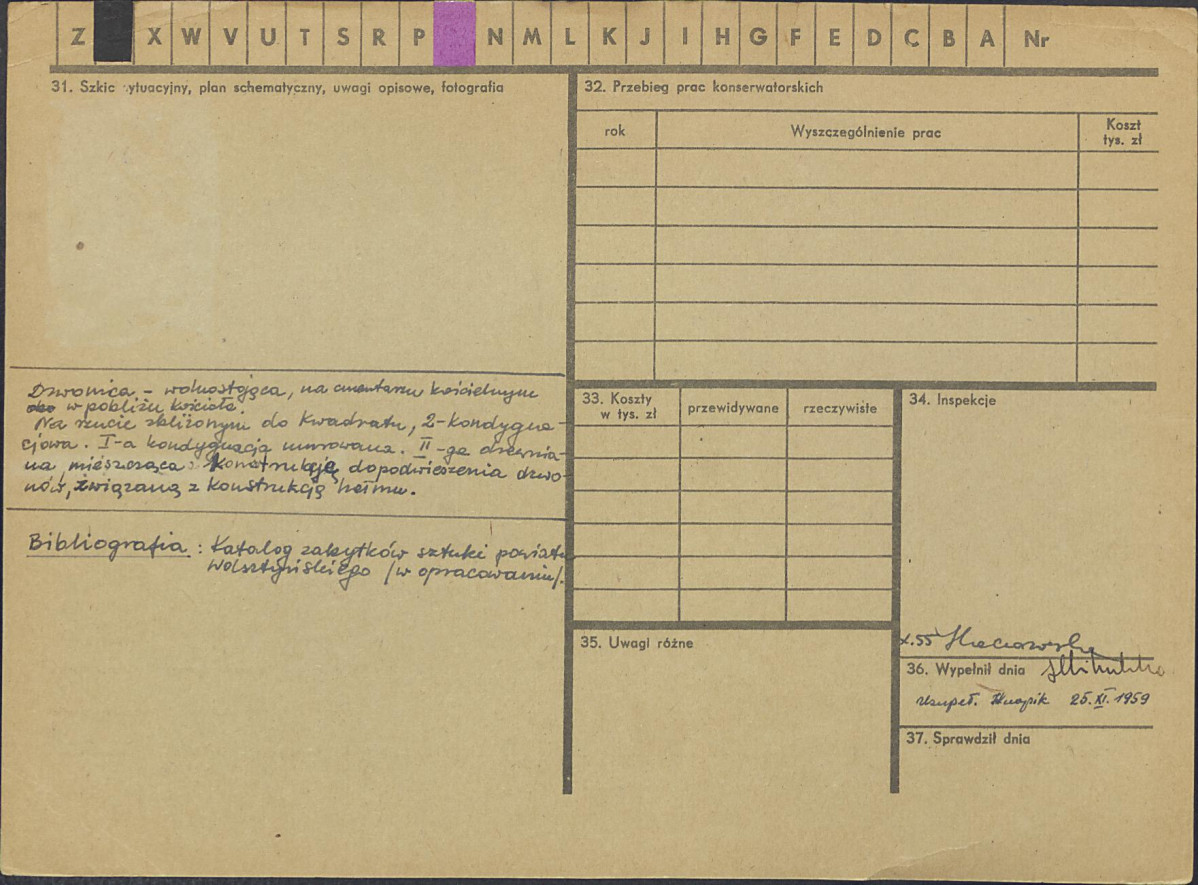 Z X W V U T S R P N M L K J I H G F E D C B A Nr
31. Szkic sytuacyjny, plan schematyczny, uwagi opisowe, fotografia
Dzwonica – wolnostojąca, na cmentarzu kościelnym
w pobliżu kościoła.
Na rzucie zbliżonym do kwadratu, 2-kondygna-
cjowa. I-a kondygnacja murowana. II-ga drewnia-
na mieszcząca konstrukcję dopodwieszenia dzwo-
nów, związaną z konstrukcją hełmu.
Bibliografia : Katalog zabytków sztuki powiatu
Wolsztyńskiego /w opracowaniu/.
32. Przebieg prac konserwatorskich
rok Wyszczególnienie prac Koszt
tys. zł
33. Koszty
w tys. zł przewidywane rzeczywiste
34. Inspekcje
X.55
35. Uwagi różne
36. Wypełnił dnia
uzupeł. 25.XI.1959
37. Sprawdził dnia